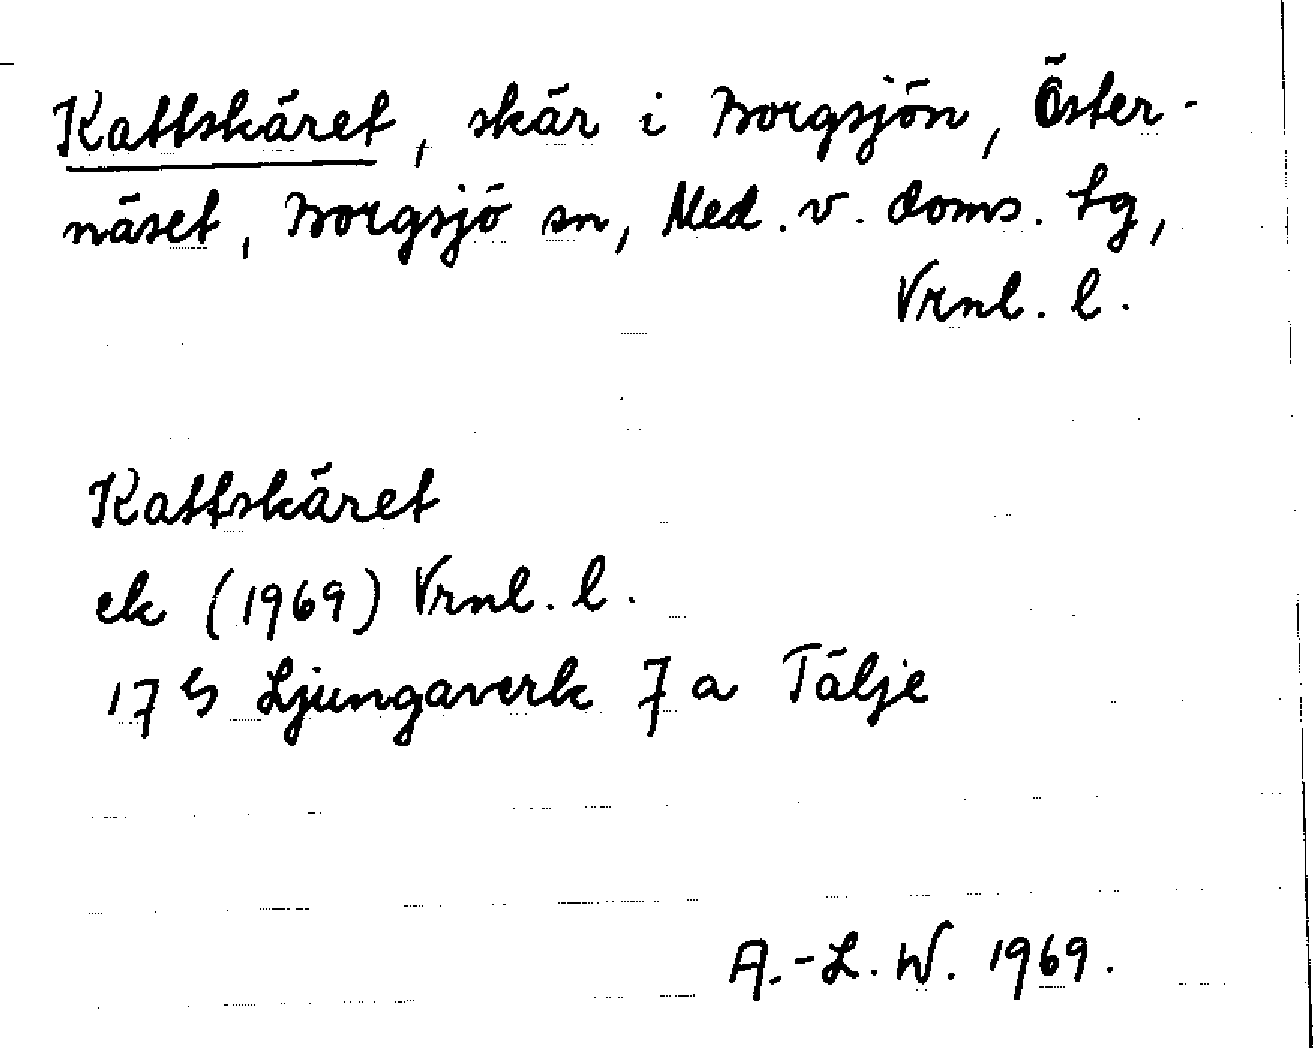 Kattskäret, skär i Borgsjön, Öster-
näset, Borgsjö sn, Med. v. doms. tg,
Vrnl. l.
Kattskäret
ek (1969) Vrnl. l.
17 G Ljungaverk 7 a Tälje
A.-L. W. 1969.